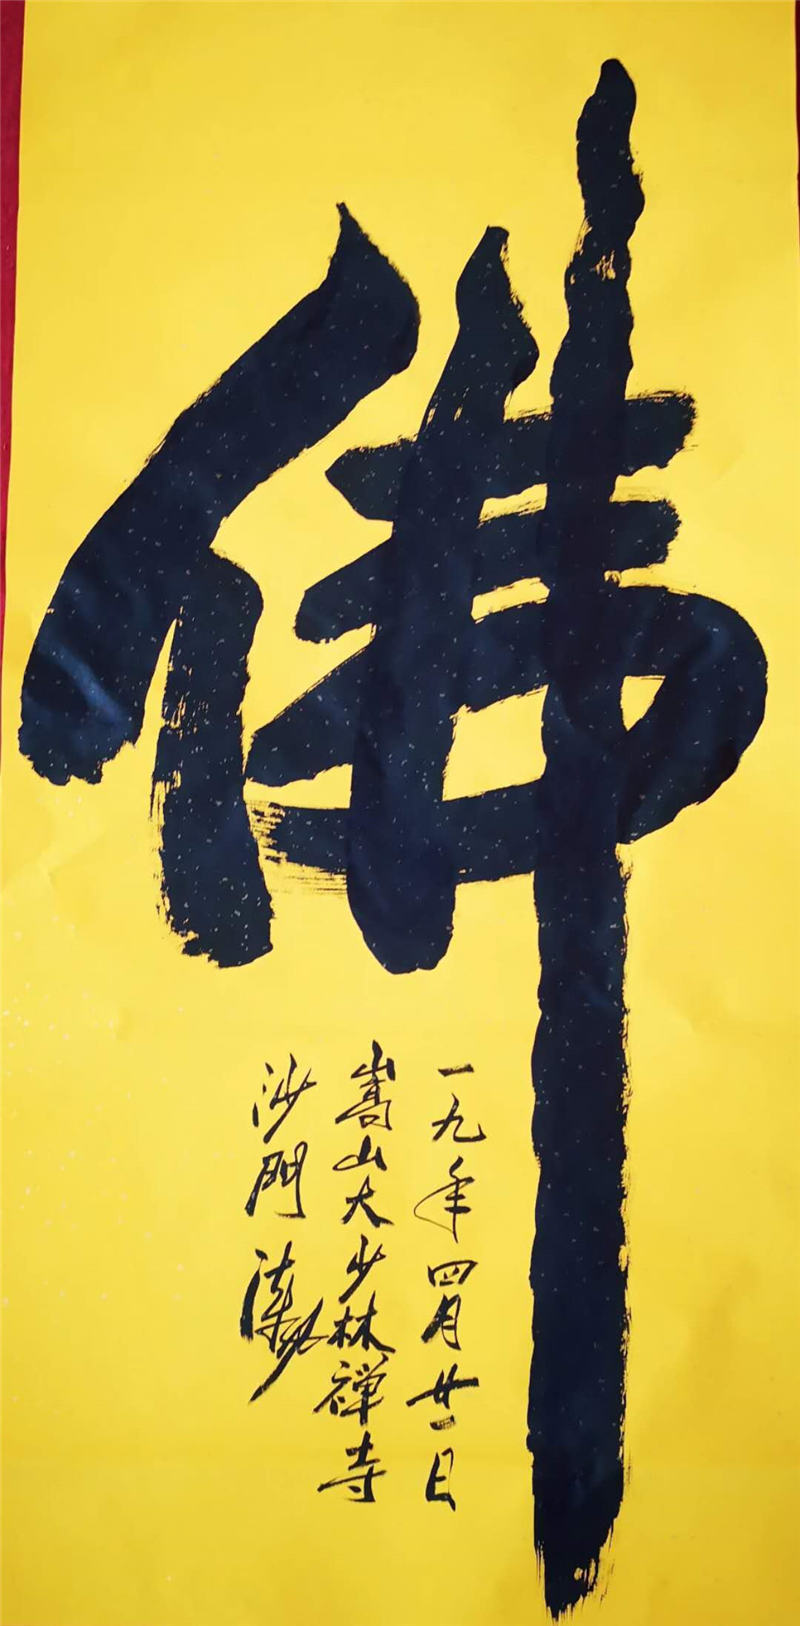 佛
一九年四月廿一日
嵩山大少林禅寺
沙門